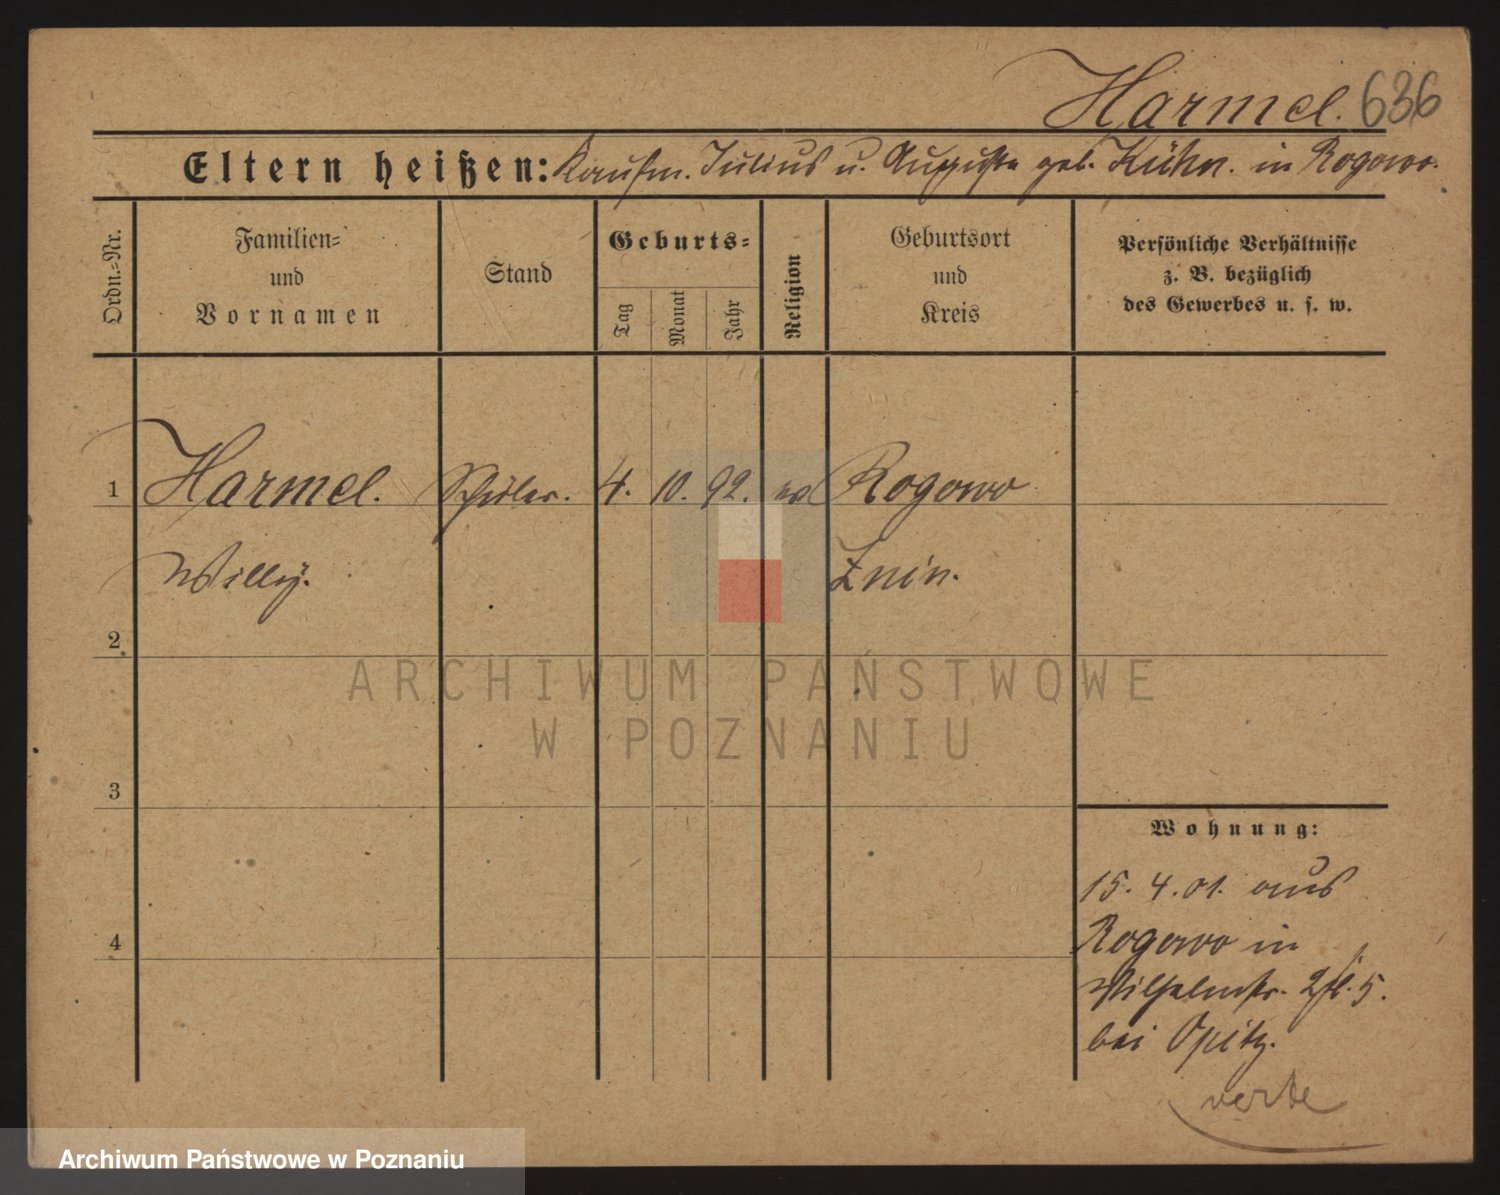 Harmel. 636
Eltern heißen: Kaufm. Julius u. Auguste geb. Kühn. in Rogowo.
Ordn.-Nr.
Familien-
und
Vornamen
Stand
Geburts-
Tag
Monat
Jahr
Religion
Geburtsort
und
Kreis
Persönliche Verhältnisse
z. B. bezüglich
des Gewerbes u. s. w.
1 Harmel. Schüler. 4. 10. 92. ev Rogowo
Willy. Znin.
2
3
4
Wohnung:
15. 4. 01. aus
Rogowo in
Wilhelmstr. 5.
bei Opitz.
verte
ARCHIWUM PAŃSTWOWE
W POZNANIU
Archiwum Państwowe w Poznaniu